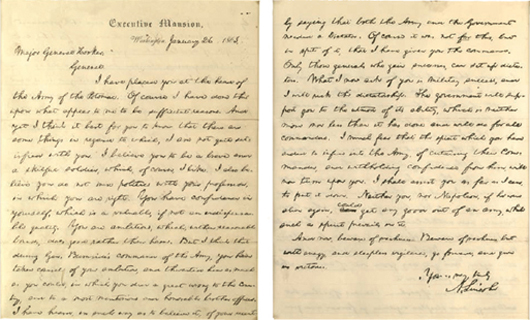 Executive Mansion,
Washington, January 26, 1863.
Major General Hooker:
General.
I have placed you at the head of
the Army of the Potomac. Of course I have done this
upon what appear to me to be sufficient reasons. And
yet I think it best for you to know that there are
some things in regard to which, I am not quite sat-
isfied with you. I believe you to be a brave and
a skilful soldier, which, of course, I like. I also be-
lieve you do not mix politics with your profession,
in which you are right. You have confidence in
yourself, which is a valuable, if not an indispensa-
ble quality. You are ambitious, which, within reasonable
bounds, does good rather than harm. But I think that
during Gen. Burnside's command of the Army, you have
taken counsel of your ambition, and thwarted him as much
as you could, in which you did a great wrong to the coun-
try, and to a most meritorious and honorable brother officer.
I have heard, in such way as to believe it, of your recent-
ly saying that both the Army and the Government
needed a Dictator. Of course it was not for this, but
in spite of it, that I have given you the command.
Only those generals who gain successes, can set up dicta-
tors. What I now ask of you is military success, and
I will risk the dictatorship. The government will sup-
port you to the utmost of its ability, which is neither
more nor less than it has done and will do for all
commanders. I much fear that the spirit which you have
aided to infuse into the Army, of criticising their Com-
mander, and withholding confidence from him, will
now turn upon you. I shall assist you as far as I can,
to put it down. Neither you, nor Napoleon, if he were
alive again, could get any good out of an army, while
such a spirit prevails in it.
And now, beware of rashness. Beware of rashness, but
with energy, and sleepless vigilance, go forward, and give
us victories.
Yours very truly
A. Lincoln